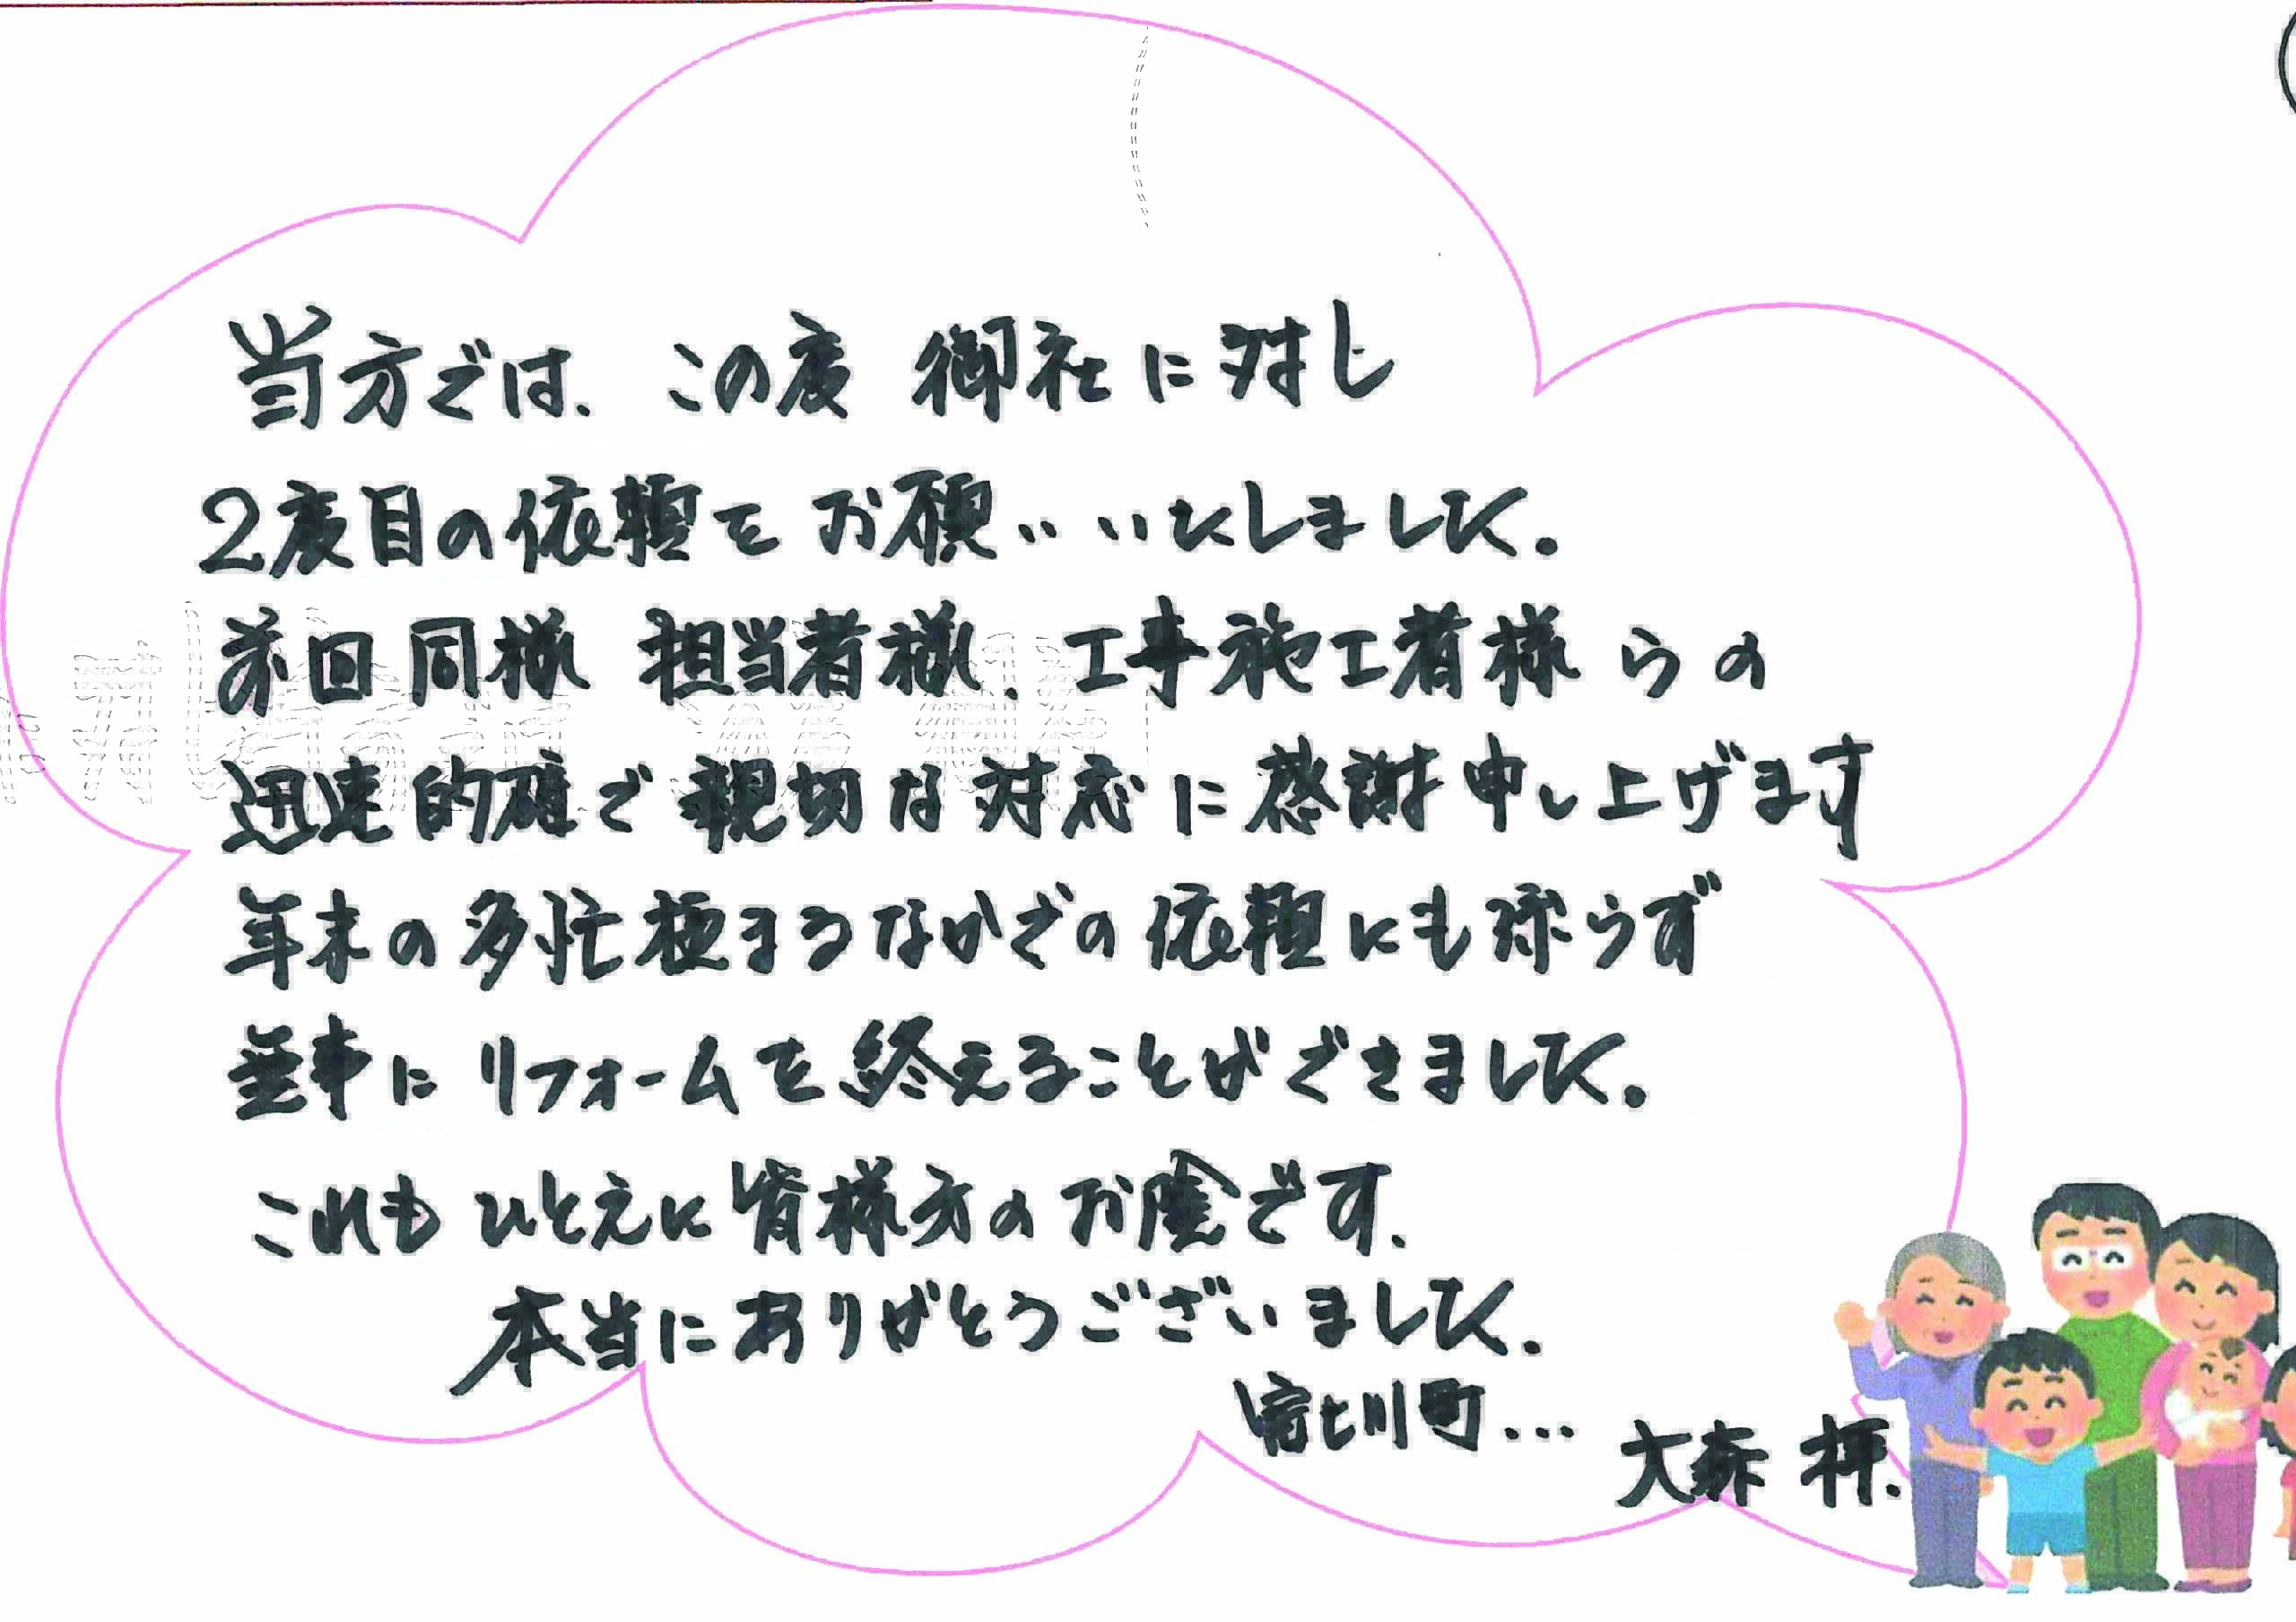 当方では、この度 御社に対し
2度目の依頼をお願いいたしました。
前回同様 担当者様、工事施工者様らの
迅速的確で親切な対応に感謝申し上げます
年末の多忙極まるなかでの依頼にも拘らず
無事にリフォームを終えることができました。
これもひとえに皆様方のお陰です、
本当にありがとうございました。
川町...
大森 拝.